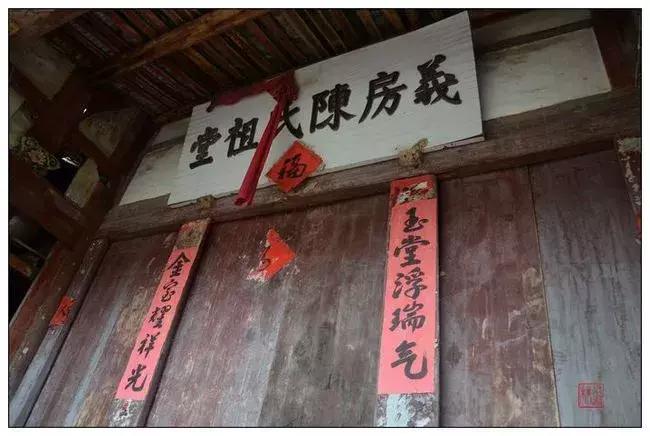 義房陳氏祖堂
福
玉堂浮瑞气
金室耀祥光